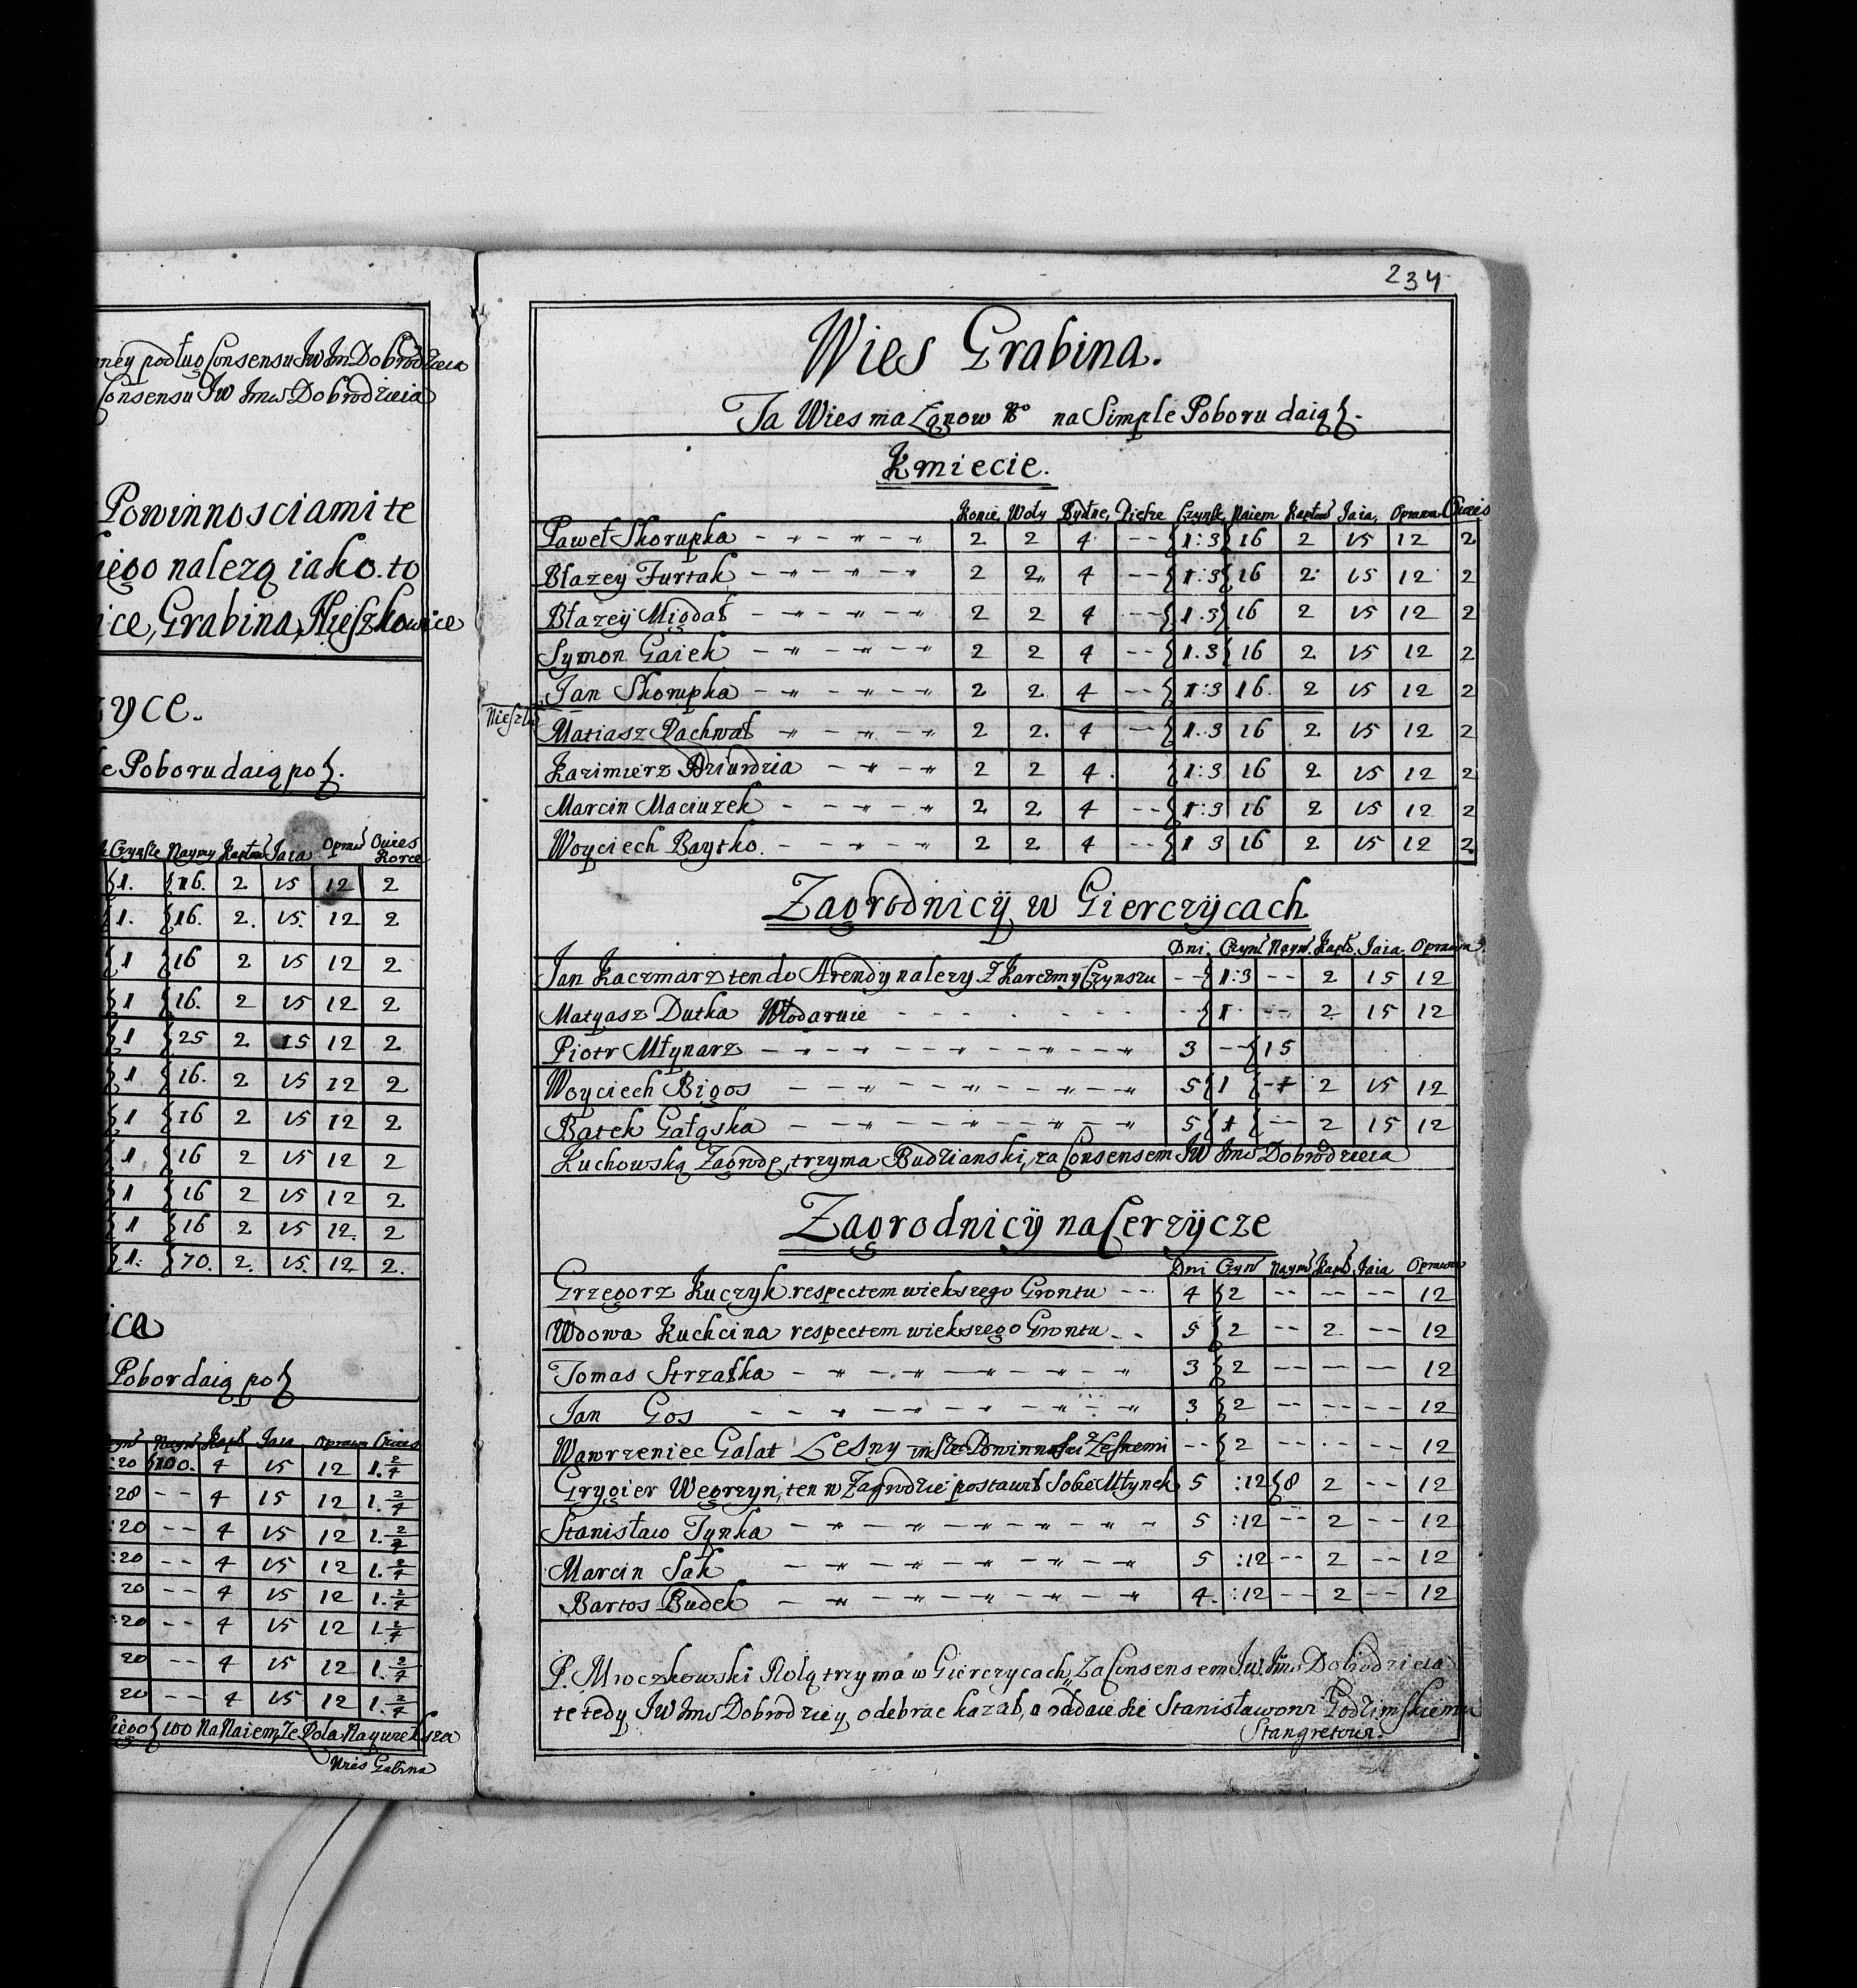 ney podług Consensu JW Jm Dobrodzieia
Consensu JW Jmś Dobrodzieia
Powinnosciami te
iego nalezą iako.to
ice, Grabina, Nieszkowice
zyce.
e Poboru daią po
Czynsze Naymy Kapłon Iaia Opraw Owies Korce
1. 16. 2 15 12 2
1. 16. 2. 15. 12 2
1 16 2 15 12 2
1 16. 2 15 12 2
1 25 2 15 12 2
1 16. 2 15 12 2
1 16 2 15 12 2
1 16 2 15 12 2
1 16 2 15 12 2
1 16 2 15 12. 2
1: 70. 2. 15. 12 2.
ica
Pobor daią po
Naym Kapł Iaia Opraw Owies
:20 100. 4 15 12 1. 2/4
:20 -- 4 15 12 1. 2/4
:20 -- 4 15 12 1. 2/4
:20 -- 4 15 12 1. 2/4
20 -- 4 15 12 1. 2/4
:20 -- 4 15 12 1. 2/4
20 -- 4 15 12 1. 2/4
20 -- 4 15 12 1. 2/4
iego 100 Na Naiem Ze Pola
Wies Gabina
234
Wies Grabina.
Ta Wies ma Łanow No na Simple Poboru daią
Kmiecie.
Konie, Woły Bydłne, Piesze Czynsze Naiem Kapłon Iaia, Oprawa Owies
Paweł Skorupka 2 2 4 -- 1:3 16 2 15 12 2
Błazey Furtak 2 2 4 -- 1:3 16 2 15 12 2
Błazey Migdał 2 2 4 -- 1.3 16 2 15 12 2
Symon Gaiek 2 2 4 -- 1.3 16 2 15 12 2
Jan Skorupka 2 2 4 -- 1:3 16. 2 15 12 2
Matiasz Pachwał 2 2. 4 -- 1.3 16 2 15 12 2
Kazimierz Dziurdzia 2 2 4. 1:3 16 2 15 12 2
Marcin Maciuzek 2 2 4 -- 1:3 16 2 15 12 2
Woyciech Baytko. 2 2 4 -- 1 3 16 2 15 12 2.
Zagrodnicÿ w Gierczÿcach
Dni. Czyn Naym. Kapł. Iaia. Oprawa.
Jan Kaczmarz ten do Arendy nalezy Z Karczmy Czynszu -- 1:3 -- 2 15 12
Matyasz Dutka Włodaruie -- 1. -- 2 15 12
Piotr Młynarz 3 -- 15
Woyciech Bigos 5 1 -- 2 15 12
Bartek Gałąska 5 1 -- 2 15 12
Kuchowską Zagrodę, trzyma Budzianski, za Consensem JW Jmś Dobrodzieia
Zagrodnicÿ na Cerzÿcze
Dni Czyn Naym Kapł Iaia Oprawa
Grzegorz Kuczyk respectem wiekszego Grontu -- 4 2 -- -- -- 12
Wdowa Kuchcina respectem wiekszego Grontu 5 2 -- 2. -- 12
Tomas Strzałka 3 2 -- -- -- 12
Jan Gos 3 2 -- -- -- 12
Wawrzeniec Galat Lesny insze Powinnosci z Lesnemi -- 2 -- -- -- 12
Grygier Węgrzyn, ten w Zagrodzie postawił Sobie Młynek 5 :12 8 2 -- 12
Stanisław Tynka 5 :12 -- 2 -- 12
Marcin Sak 5 :12 -- 2 -- 12
Bartos Budek 4. :12 -- 2 -- 12
P. Mroczkowski Rolą trzyma w Gierczycach, Za Consensem Jw. Jmś Dobrodzieia
te tedy JW Jmś Dobrodziey odebrac kazał, a oddacie sie Stanisławowi Godzimskiemu
Stangretowi.